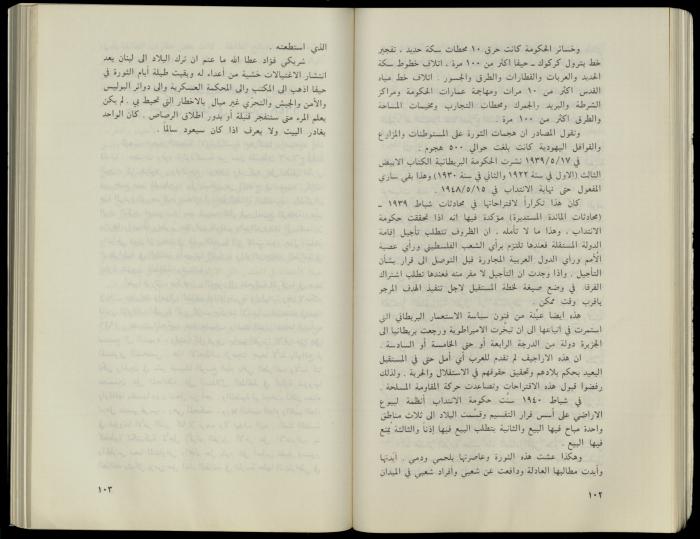 وخسائر الحكومة كانت حرق ١٠ محطات سكة حديد ، تفجير
خط بترول كركوك ـ حيفا اكثر من ١٠٠ مرة . اتلاف خطوط سكة
الحديد والعربات والقطارات والطرق والجسور . اتلاف خط مياه
القدس اكثر من ١٠ مرات ومهاجمة عمارات الحكومة ومراكز
الشرطة والبريد والجمرك ومحطات التجارب ومخيمات المساحة
والطرق اكثر من ١٠٠ مرة .
وتقول المصادر ان هجمات الثورة على المستوطنات والمزارع
والقوافل اليهودية كانت بلغت حوالي ٥٠٠ هجوم .
في ١٩٣٩/٥/١٧ نشرت الحكومة البريطانية الكتاب الابيض
الثالث (الاول في سنة ١٩٢٢ والثاني في سنة ١٩٣٠) وهذا بقي ساري
المفعول حتى نهاية الانتداب في ١٩٤٨/٥/١٥ .
كان هذا تكراراً لاقتراحاتها في محادثات شباط ١٩٣٩ ـ
(محادثات المائدة المستديرة) مؤكدة فيها انه اذا تحققت حكومة
الانتداب ، وهذا ما لا تأمله ، ان الظروف تتطلب تأجيل إقامة
الدولة المستقلة فعندها تلتزم برأي الشعب الفلسطيني ورأي عصبة
الأمم ورأي الدول العربية المجاورة قبل التوصل الى قرار بشأن
التأجيل . واذا وجدت ان التأجيل لا مفر منه فعندها تطلب اشتراك
الفرقا في وضع صيغة لخطة المستقبل لاجل تنفيذ الهدف المرجو
باقرب وقت ممكن .
هذه ايضا عيّنة من فنون سياسة الاستعمار البريطاني التي
استمرت في اتباعها الى ان تبخّرت الامبراطورية ورجعت بريطانيا الى
الجزيرة دولة من الدرجة الرابعة أو حتى الخامسة أو السادسة .
ان هذه الاراجيف لم تقدم للعرب أي أمل حتى في المستقبل
البعيد بحكم بلادهم وتحقيق حقوقهم في الاستقلال والحرية . ولذلك
رفضوا قبول هذه الاقتراحات وتصاعدت حركة المقاومة المسلحة .
في شباط ١٩٤٠ سنّت حكومة الانتداب أنظمة لبيوع
الاراضي على أسس قرار التقسيم وقسّمت البلاد الى ثلاث مناطق
واحدة مباح فيها البيع والثانية يتطلب البيع فيها إذناً والثالثة يمنع
فيها البيع .
وهكذا عشت هذه الثورة وعاصرتها بلحمي ودمي . أيدتها
وأيدت مطاليها العادلة ودافعت عن شعبي وافراد شعبي في الميدان
١٠٢
الذي استطعته .
شريكي فؤاد عطا الله ما عتم ان ترك البلاد الى لبنان بعد
انتشار الاغتيالات خشية من أعداء له وبقيت طيلة أيام الثورة في
حيفا اذهب الى المكتب والى المحكمة العسكرية والى دوائر البوليس
والأمن والجيش والتحري غير مبال بالاخطار التي تحيط بي . لم يكن
يعلم المرء متى ستنفجر قنبلة أو يدور اطلاق الرصاص . كان الواحد
يغادر البيت ولا يعرف اذا كان سيعود سالماً .
١٠٣